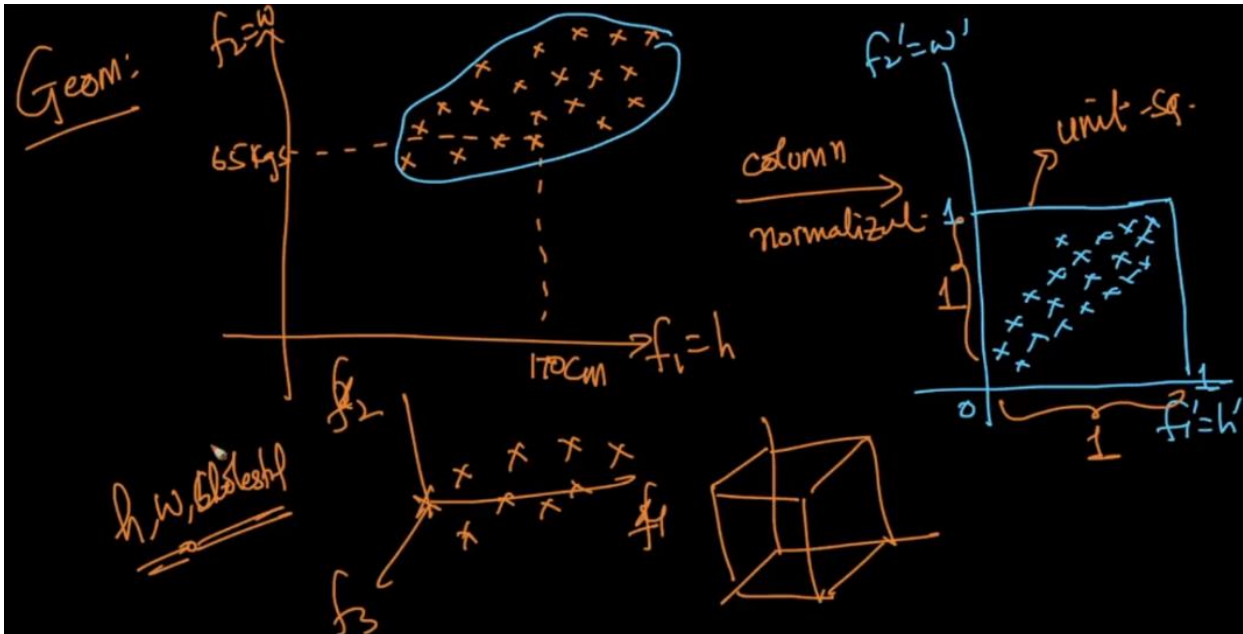 Geom:
f₂=w
65Kgs
170cm
f₁=h
column
normalizat-
f₂'=w'
unit-sq.
1
1
0
1
1
f₁'=h'
f₂
f₁
f₃
h, w,